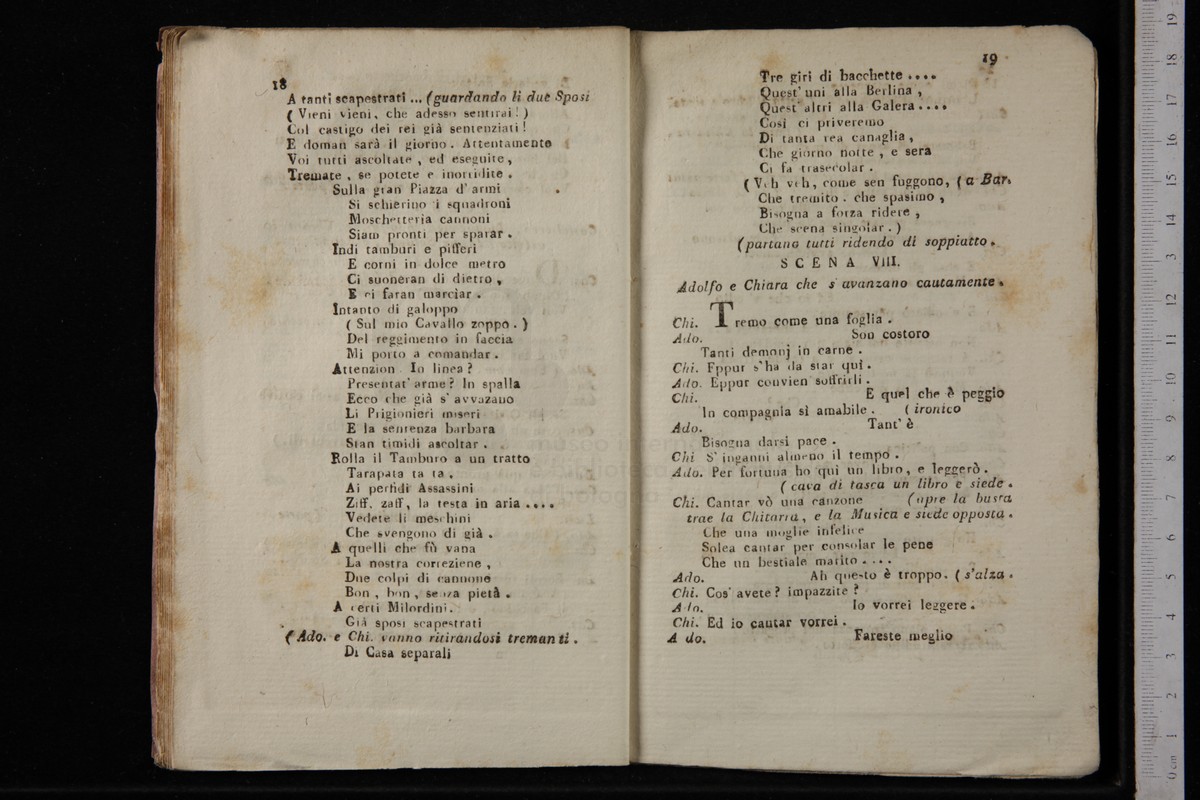 18
A tanti scapestrati ... (guardando li due Sposi
( Vieni vieni, che adesso sentirai ! )
Col castigo dei rei già sentenziati !
E doman sarà il giorno . Attentamente
Voi tutti ascoltate , ed eseguite ,
Tremate , se potete e inorridite .
Sulla gran Piazza d' armi
Si schierino i squadroni
Moschetteria cannoni
Siam pronti per sparar .
Indi tamburi e pifferi
E corni in dolce metro
Ci suoneran di dietro ,
E ci faran marciar .
Intanto di galoppo
( Sul mio Cavallo zoppo . )
Del reggimento in faccia
Mi porto a comandar .
Attenzion . In linea ?
Presentat' arme ? In spalla
Ecco che già s' avvazano
Li Prigionieri miseri
E la sentenza barbara
Stan timidi ascoltar .
Rolla il Tamburo a un tratto
Tarapata ta ta .
Ai perfidi Assassini
Ziff. zaff, la testa in aria ....
Vedete li meschini
Che svengono di già .
A quelli che fù vana
La nostra correzione ,
Due colpi di cannone
Bon , bon , senza pietà .
A certi Milordini.
Già sposi scapestrati
( Ado. e Chi. vanno ritirandosi tremanti .
Di Casa separali
19
Tre giri di bacchette ....
Quest' uni alla Berlina ,
Quest' altri alla Galera ....
Così ci priveremo
Di tanta rea canaglia ,
Che giorno notte , e sera
Ci fa trasecolar .
( Veh veh, come sen fuggono, ( a Bar.
Che tremito . che spasimo ,
Bisogna a forza ridere ,
Che scena singolar . )
(partano tutti ridendo di soppiatto .
SCENA VIII.
Adolfo e Chiara che s' avanzano cautamente .
Chi. Tremo come una foglia .
Ado. Son costoro
Tanti demonj in carne .
Chi. Eppur s'ha da star quì .
Ado. Eppur convien soffrirli .
Chi. E quel che è peggio
In compagnia sì amabile . ( ironico
Ado. Tant' è
Bisogna darsi pace .
Chi S' inganni almeno il tempo .
Ado. Per fortuna ho qui un libro, e leggerò .
( cava di tasca un libro e siede .
Chi. Cantar vò una canzone (apre la busta
trae la Chitarra, e la Musica e siede opposta .
Che una moglie infelice
Solea cantar per consolar le pene
Che un bestiale marito ....
Ado. Ah questo è troppo. ( s'alza .
Chi. Cos' avete ? impazzite ?
Ado. Io vorrei leggere .
Chi. Ed io cantar vorrei .
Ado. Fareste meglio